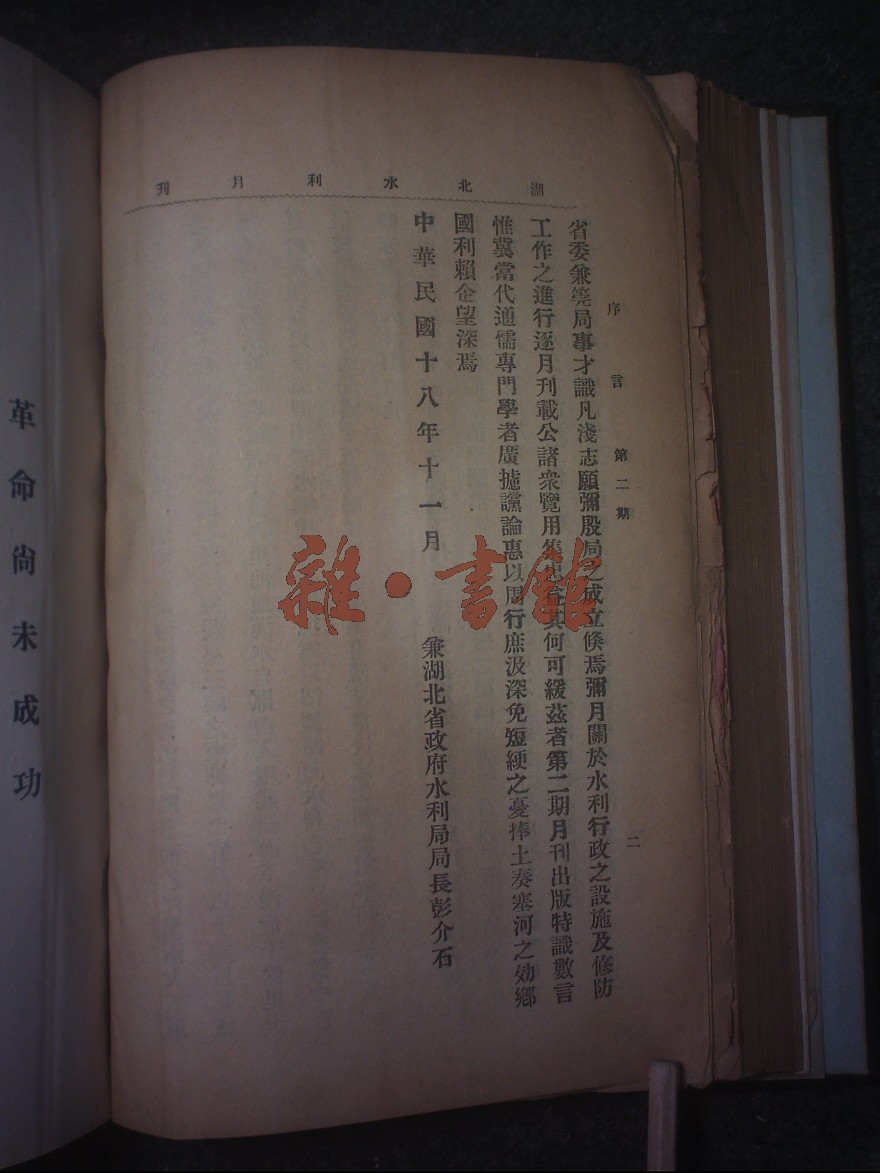 湖北水利月刊
序言 第二期
二
省委兼筦局事才識凡淺志願彌殷局之成立倏焉彌月關於水利行政之設施及修防
工作之進行逐月刊載公諸衆覽用集思益其何可緩茲者第二期月刊出版特識數言
惟冀當代通儒專門學者廣攄讜論惠以周行庶汲深免短綆之憂捧土奏塞河之効鄉
國利賴企望深焉
中華民國十八年十一月
兼湖北省政府水利局局長彭介石
革命尚未成功
雜·書館